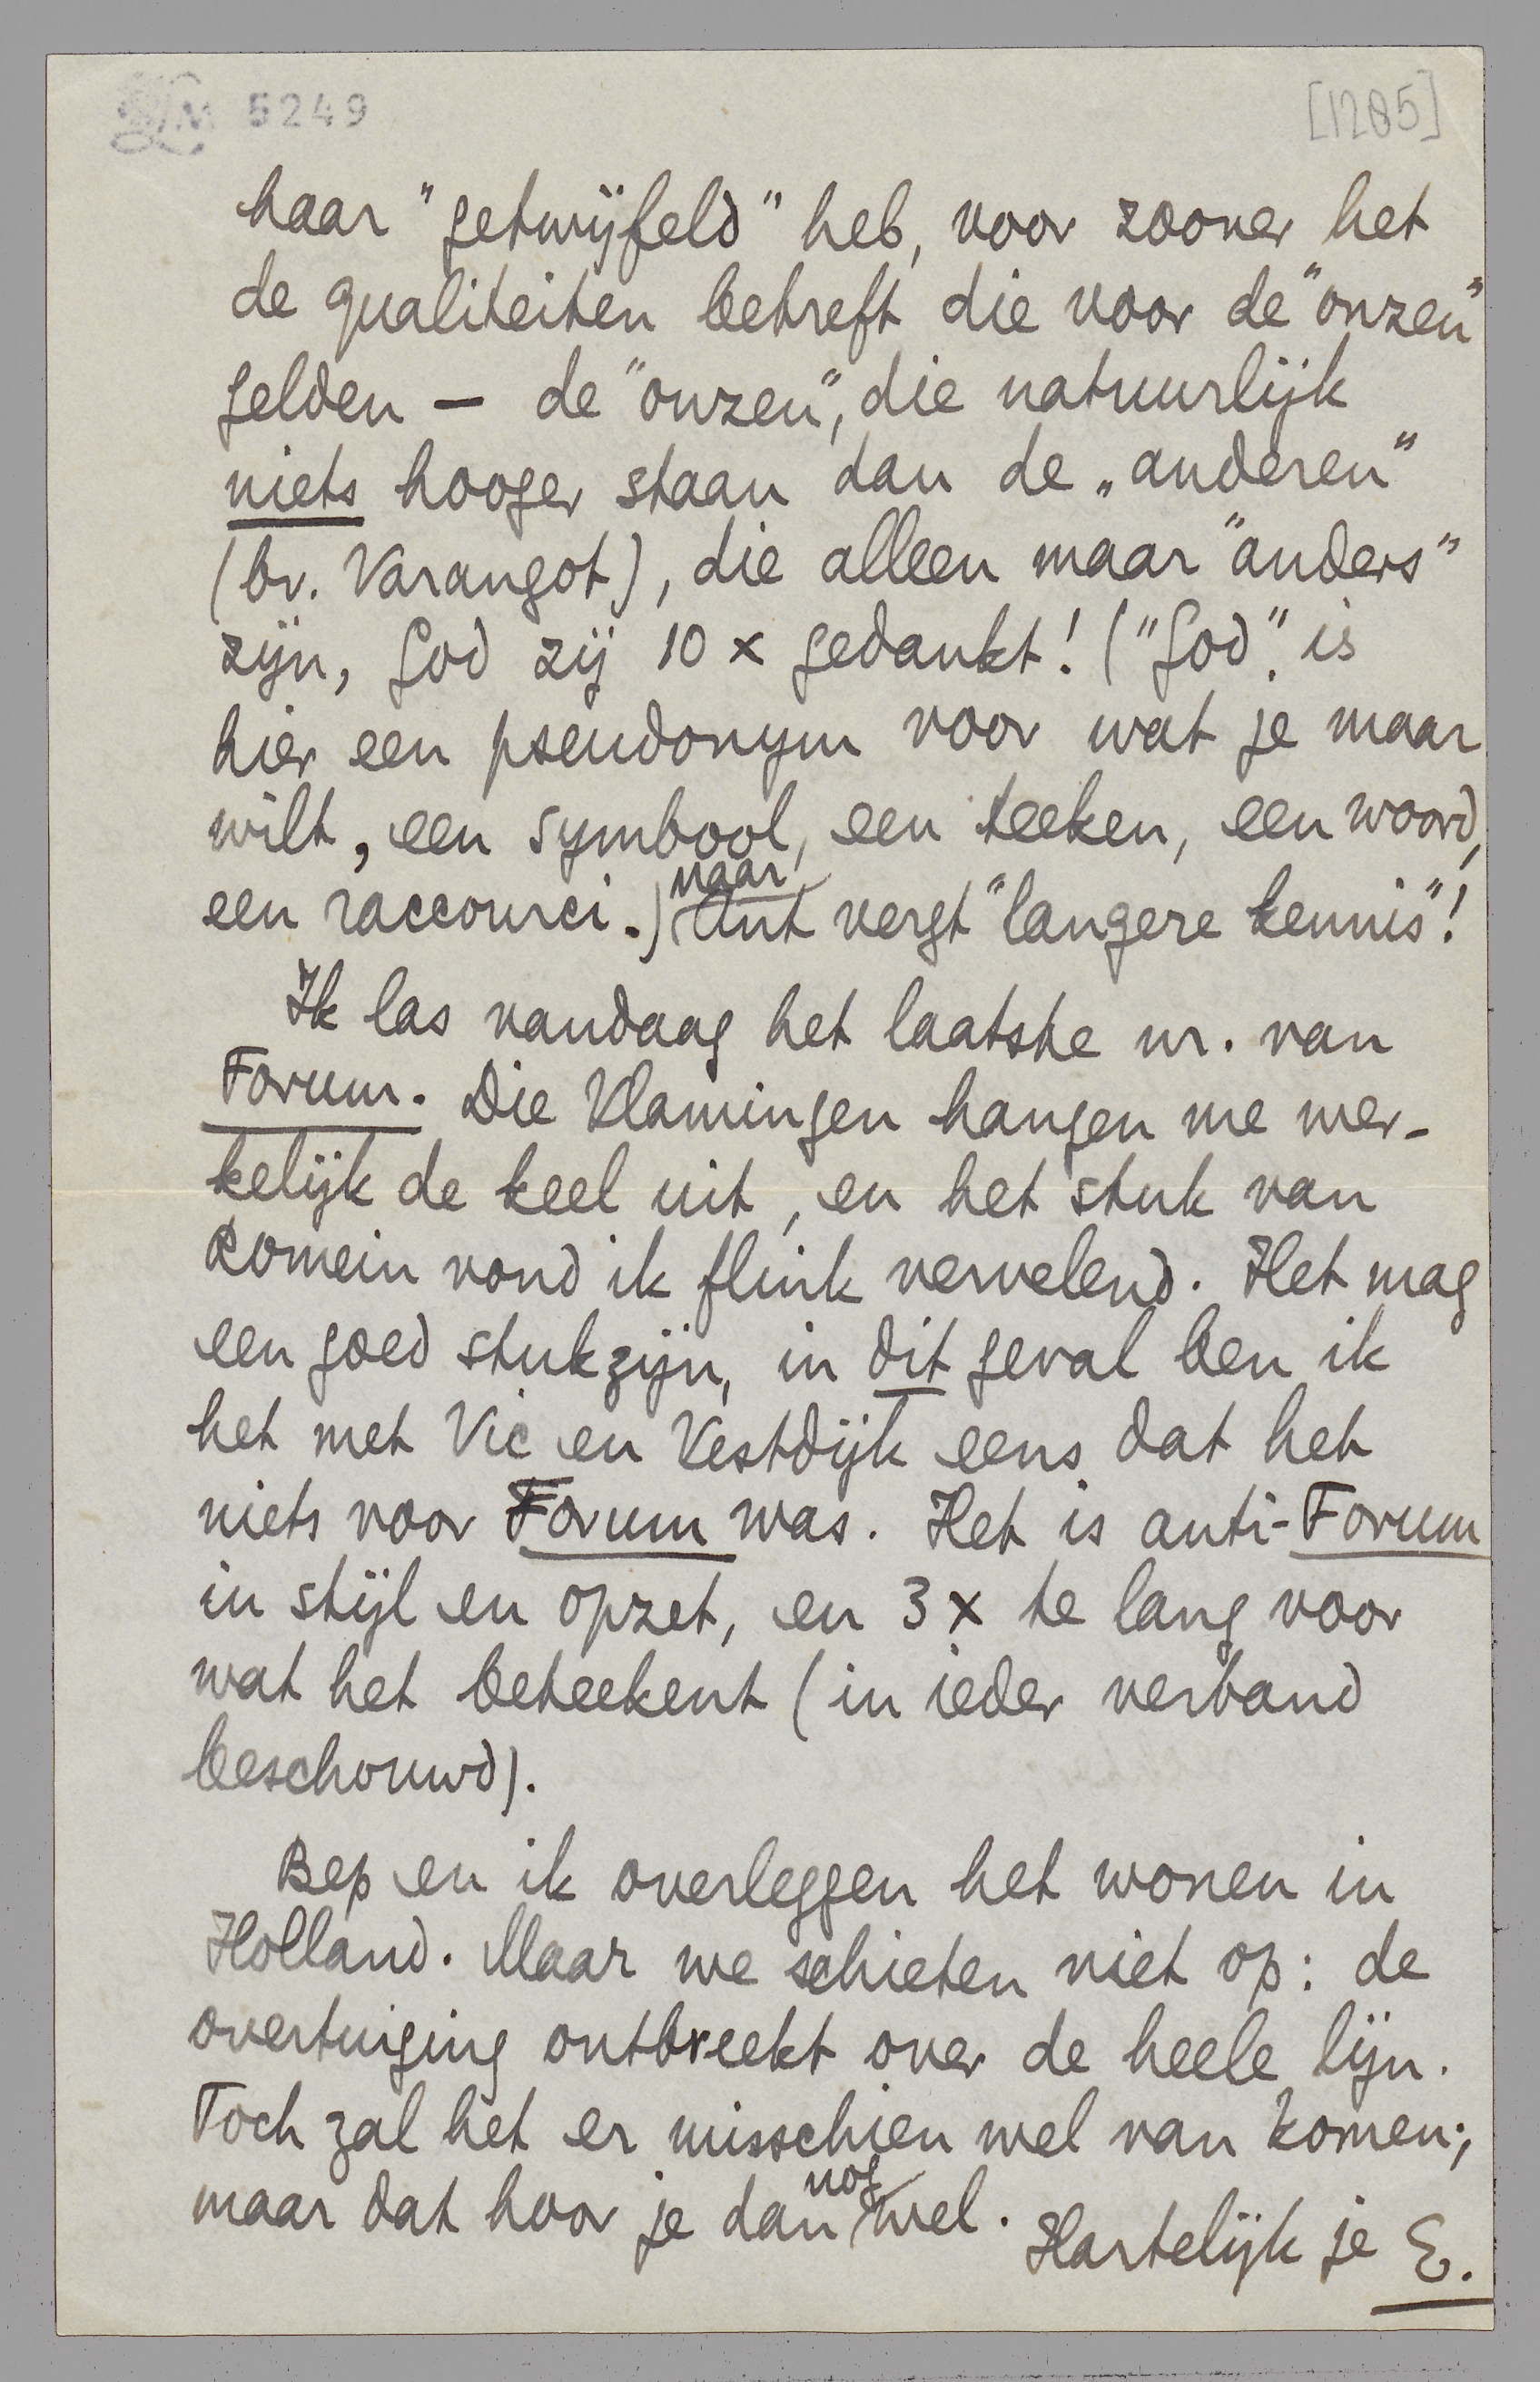 LM 5249
[1285]
haar "getwijfeld" heb, voor zoover het
de qualiteiten betreft die voor de "onzen"
gelden — de "onzen", die natuurlijk
niets hooger staan dan de „anderen"
(bv. Varangot), die alleen maar "anders"
zijn, God zij 10 x gedankt! ("God". is
hier een pseudonym voor wat je maar
wilt, een symbool, een teeken, een woord,
een raccourci.) maar Ant vergt "langere kennis"!
Ik las vandaag het laatste nr. van
Forum. Die Vlamingen hangen me wer-
kelijk de keel uit, en het stuk van
Romein vond ik flink vervelend. Het mag
een goed stuk zijn, in dit geval ben ik
het met Vic en Vestdijk eens dat het
niets voor Forum was. Het is anti-Forum
in stijl en opzet, en 3 x te lang voor
wat het beteekent (in ieder verband
beschouwd).
Bep en ik overleggen het wonen in
Holland. Maar we schieten niet op: de
overtuiging ontbreekt over de heele lijn.
Toch zal het er misschien wel van komen;
maar dat hoor je dan nog wel. Hartelijk je E.